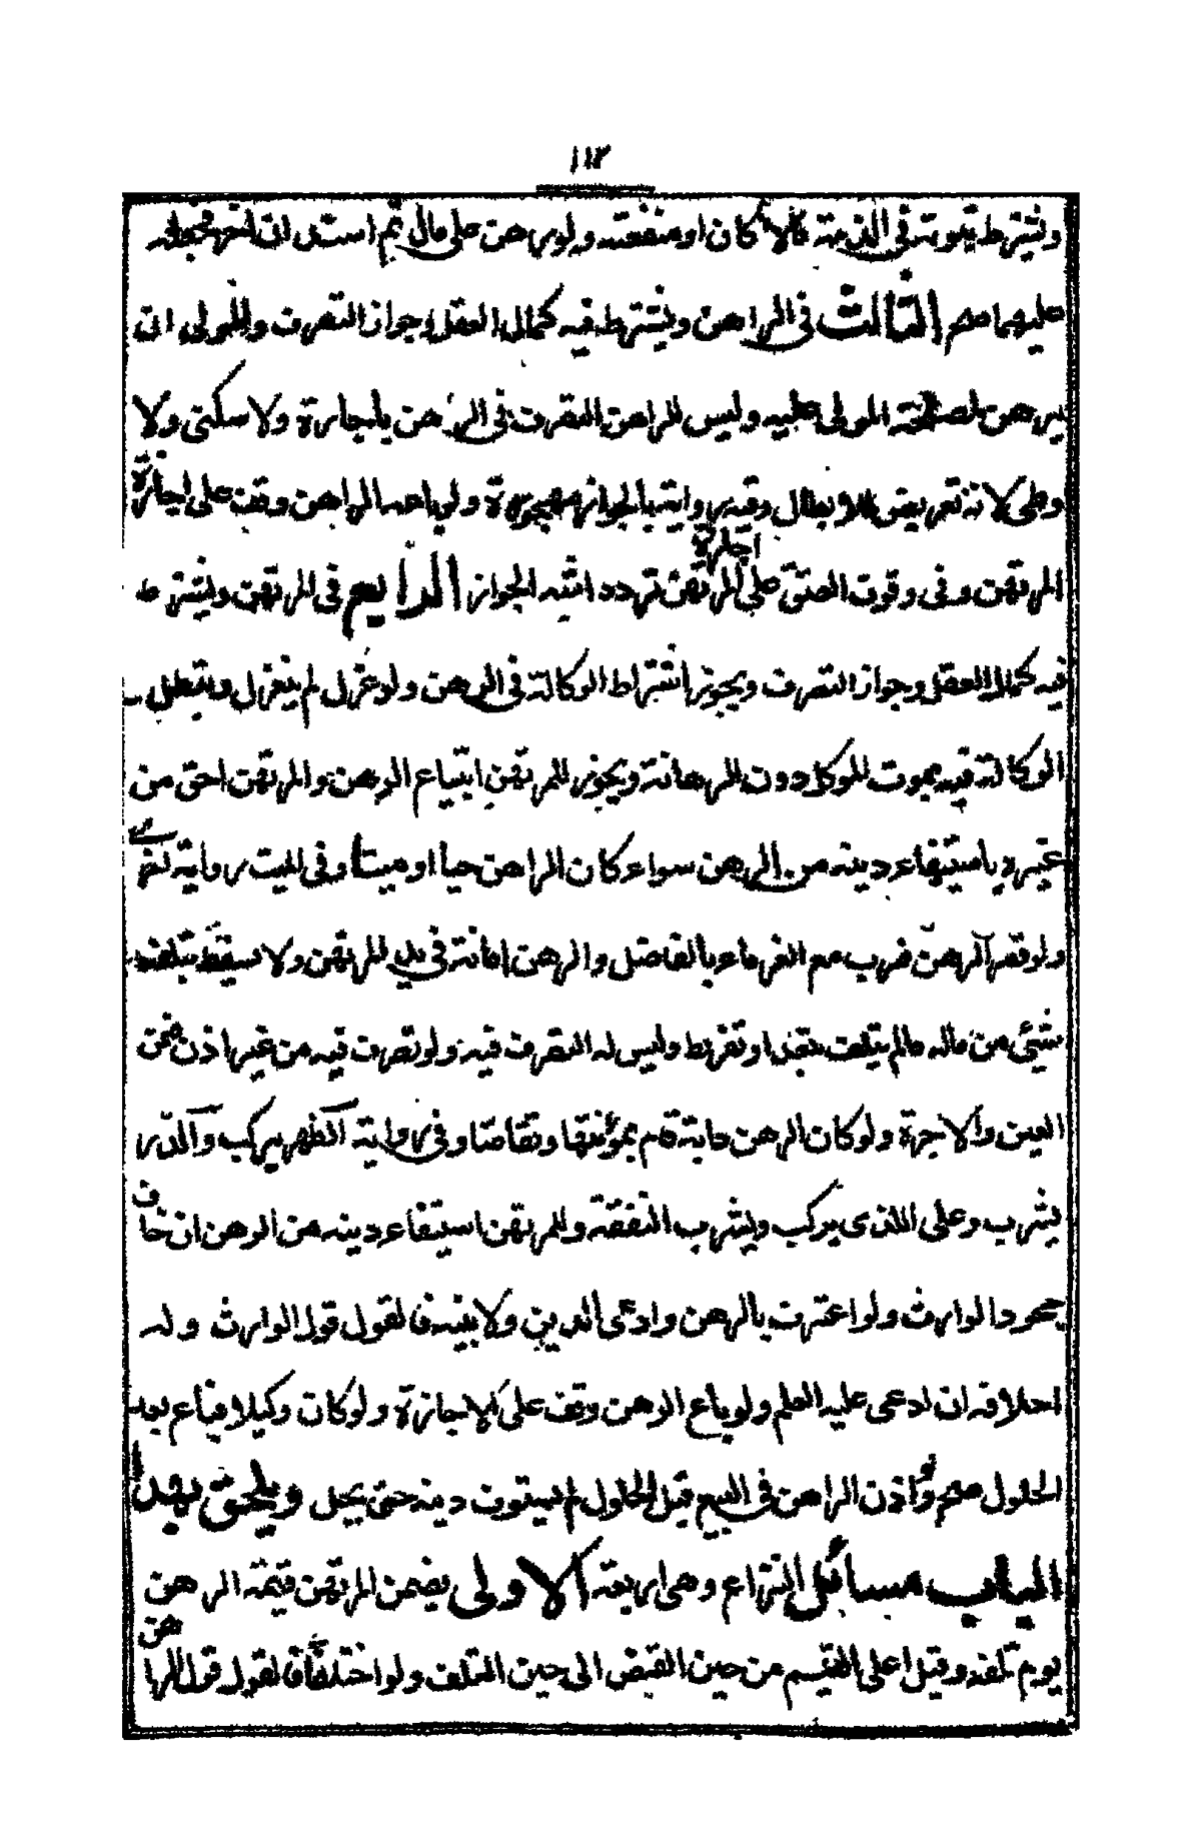 ١١٣
ويشترط ثبوته في الذمة مالا كان او منفعته ولو رهن على مال ثم استدان اخر فجعله
عليهما صح الثالث في الراهن ويشترط فيه كمال العقل وجواز التصرف وللولي ان
يرهن لمصلحة المولى عليه وليس للراهن التصرف في الرهن باجارة ولا سكنى ولا
وطى لانه تعريض للابطال وفيه رواية بالجواز مهجورة ولو باعه الراهن وقف على اجازة
المرتهن وفى وقوف العتق على اجازة المرتهن تردد اشبه الجواز الرابع في المرتهن ويشترط
فيه كمال العقل وجواز التصرف ويجوز اشتراط الوكالة في الرهن ولو عزل لم ينعزل وتبطل
الوكالة فيه بموت الموكل دون الرهانة ويجوز للمرتهن ابتياع الرهن والمرتهن احق من
غيره باستيفاء دينه من الرهن سواء كان الراهن حيا او ميتا وفى الميت رواية اخرى
ولو قصر الرهن ضرب مع الغرماء بالفاضل والرهن امانة في يد المرتهن ولا يسقط بتلفه
شئ من ماله مالم يتلف بتعد او تفريط وليس له التصرف فيه ولو تصرف فيه من غير اذن ضمن
العين والاجرة ولو كان الرهن دابة قام بمؤنتها وتقاصا وفى رواية الظهر يركب والدر
يشرب وعلى الذى يركب ويشرب النفقة وللمرتهن استيفاء دينه من الرهن ان خاف
جحود الوارث ولو اعترف بالرهن وادعى الدين ولا بينة فالقول قول الوارث وله
احلافه ان ادعى عليه العلم ولو باع الرهن وقف على الاجازة ولو كان وكيلا فباع بعد
الحلول صح ولو اذن الراهن في البيع قبل الحلول لم يستوف دينه حتى يحل ويلحق بهذا
الباب مسائل النزاع وهى اربعة الاولى يضمن المرتهن قيمة الرهن
يوم تلفه وقيل اعلى القيم من حين القبض الى حين التلف ولو اختلفا فالقول قول الراهن